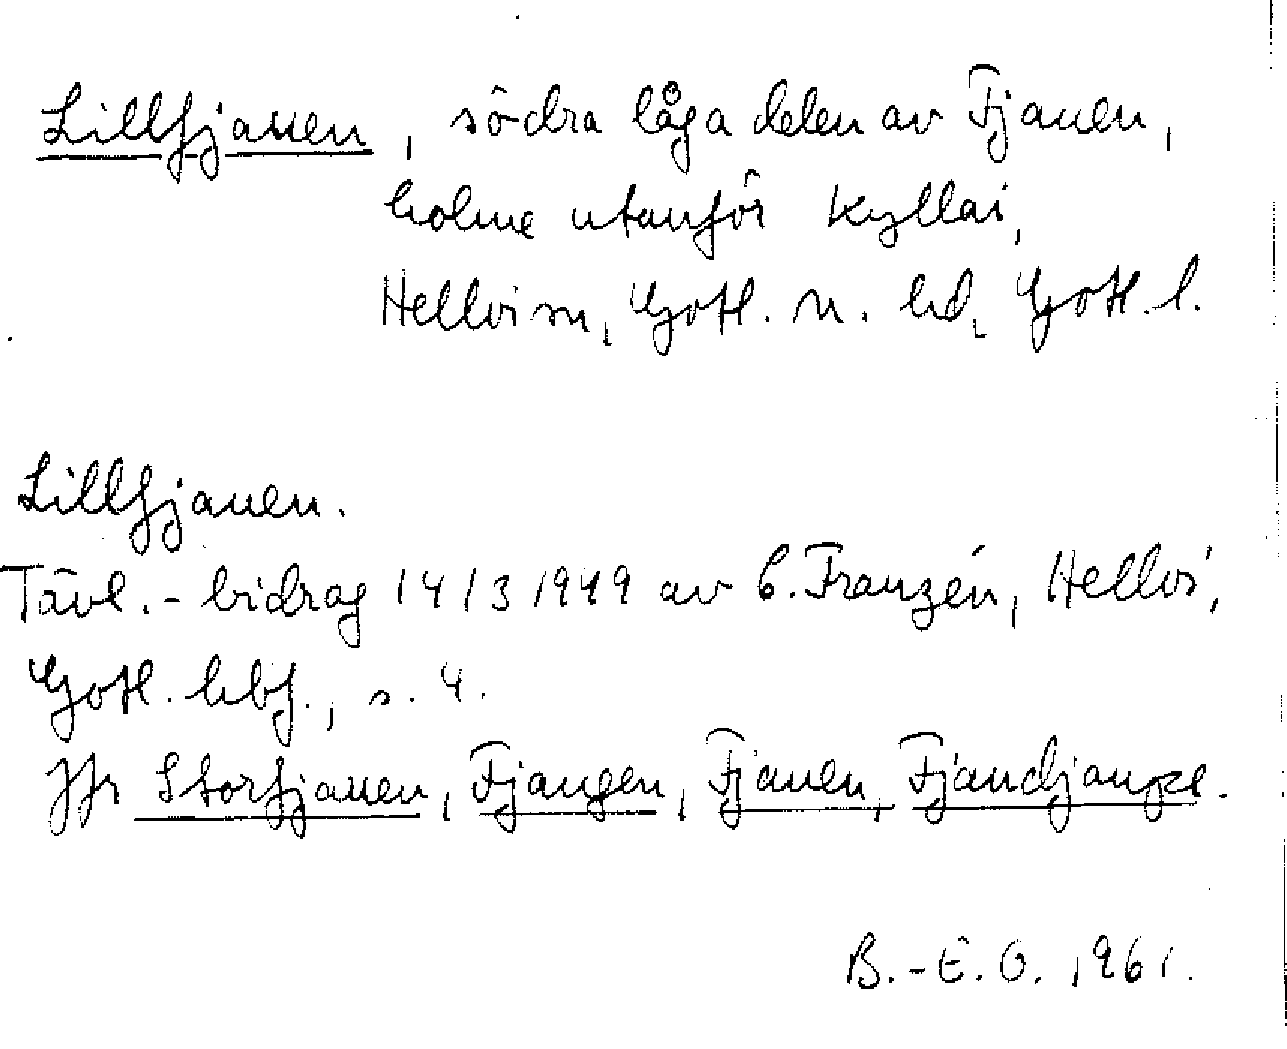 Lillfjauen, södra låga delen av Fjauen,
holme utanför Kyllai,
Hellvi sn, Gotl. n. hd, Gotl. l.
Lillfjauen.
Tävl.-bidrag 14/3 1949 av B. Franzén, Hellvi,
Gotl. hbf., s. 4.
Jfr Storfjauen, Fjaugen, Fjauen,
B.-E. O. 1961.